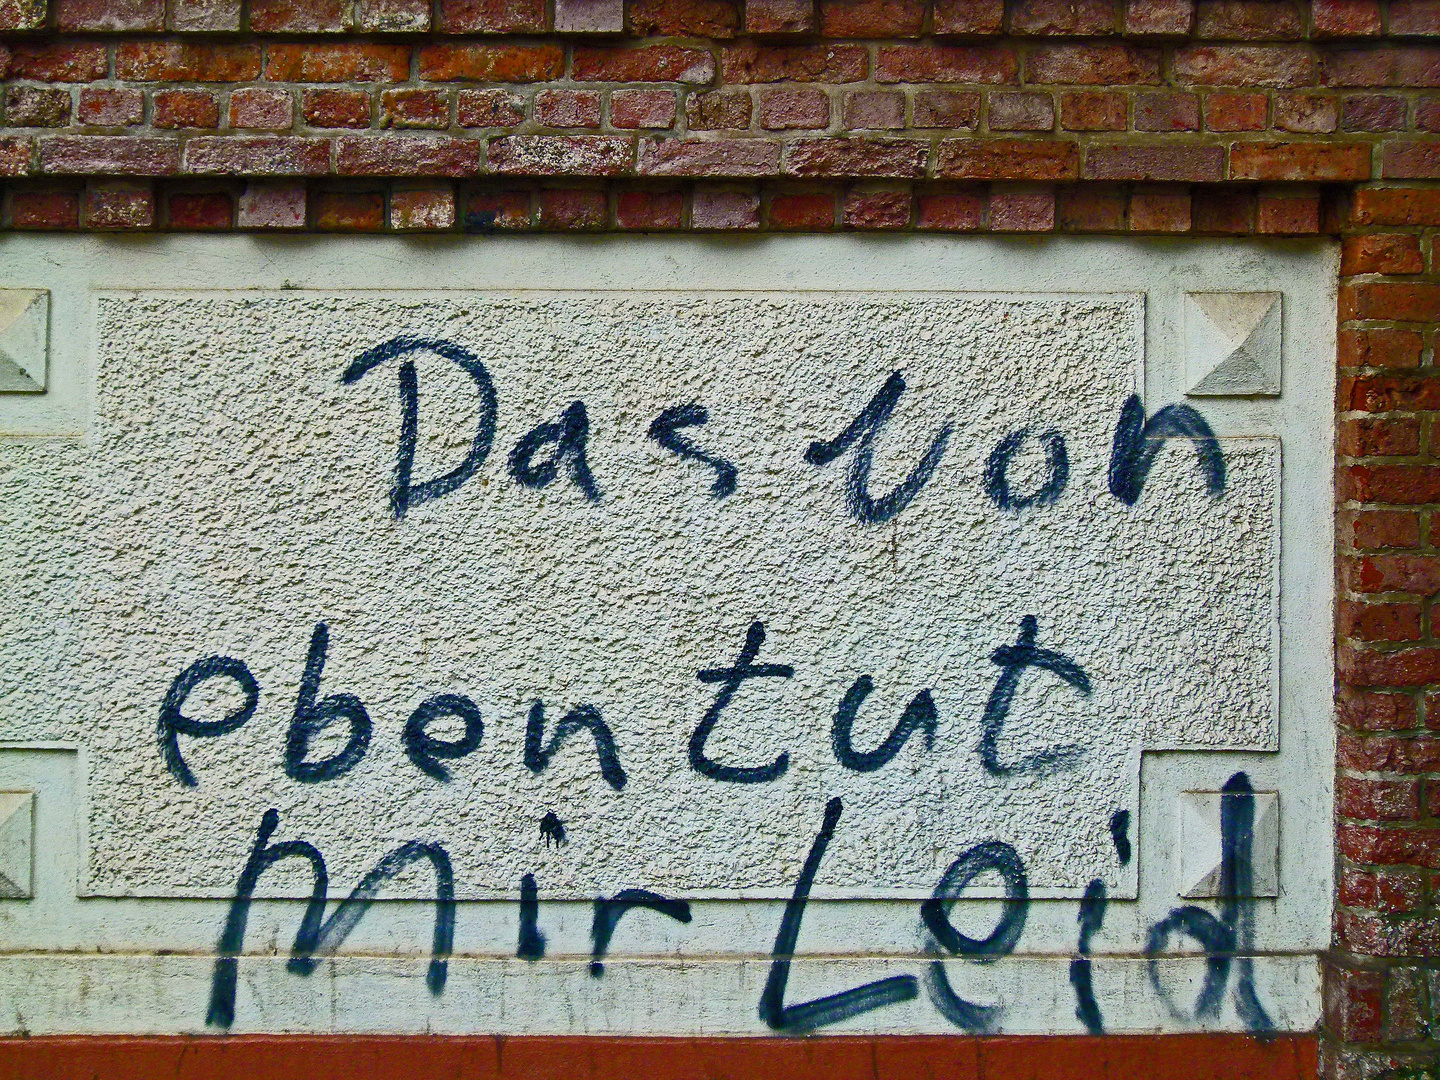 Das von
eben tut
mir Leid